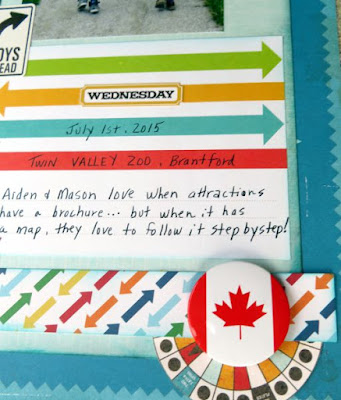 OYS
EAD
WEDNESDAY
July 1st, 2015
TWIN VALLEY ZOO, Brantford
Aiden & Mason love when attractions
have a brochure... but when it has
a map, they love to follow it step by step!